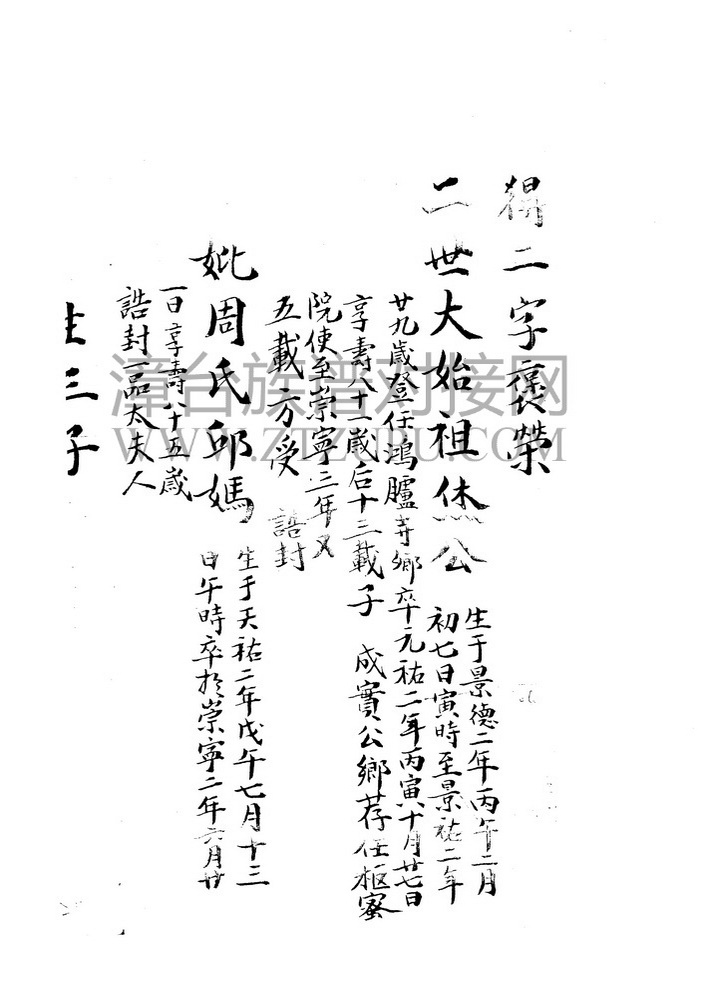 得二字褒榮
二世大始祖烋公
生于景德二年丙午二月
初七日寅時至景祐二年
廿九歲登任鴻臚寺鄉卒元祐二年丙寅十月廿七日
享壽八十一歲后十三載子 成實公鄉荐任枢蜜
院使至崇寧三年又
五載方受 誥封
妣周氏邱媽
生于天祐二年戊午七月十三
日午時卒於崇寧二年六月廿
一日享壽八十五歲
誥封一品太夫人
生三子
漳台族谱对接网
WWW.ZTZUPU.COM